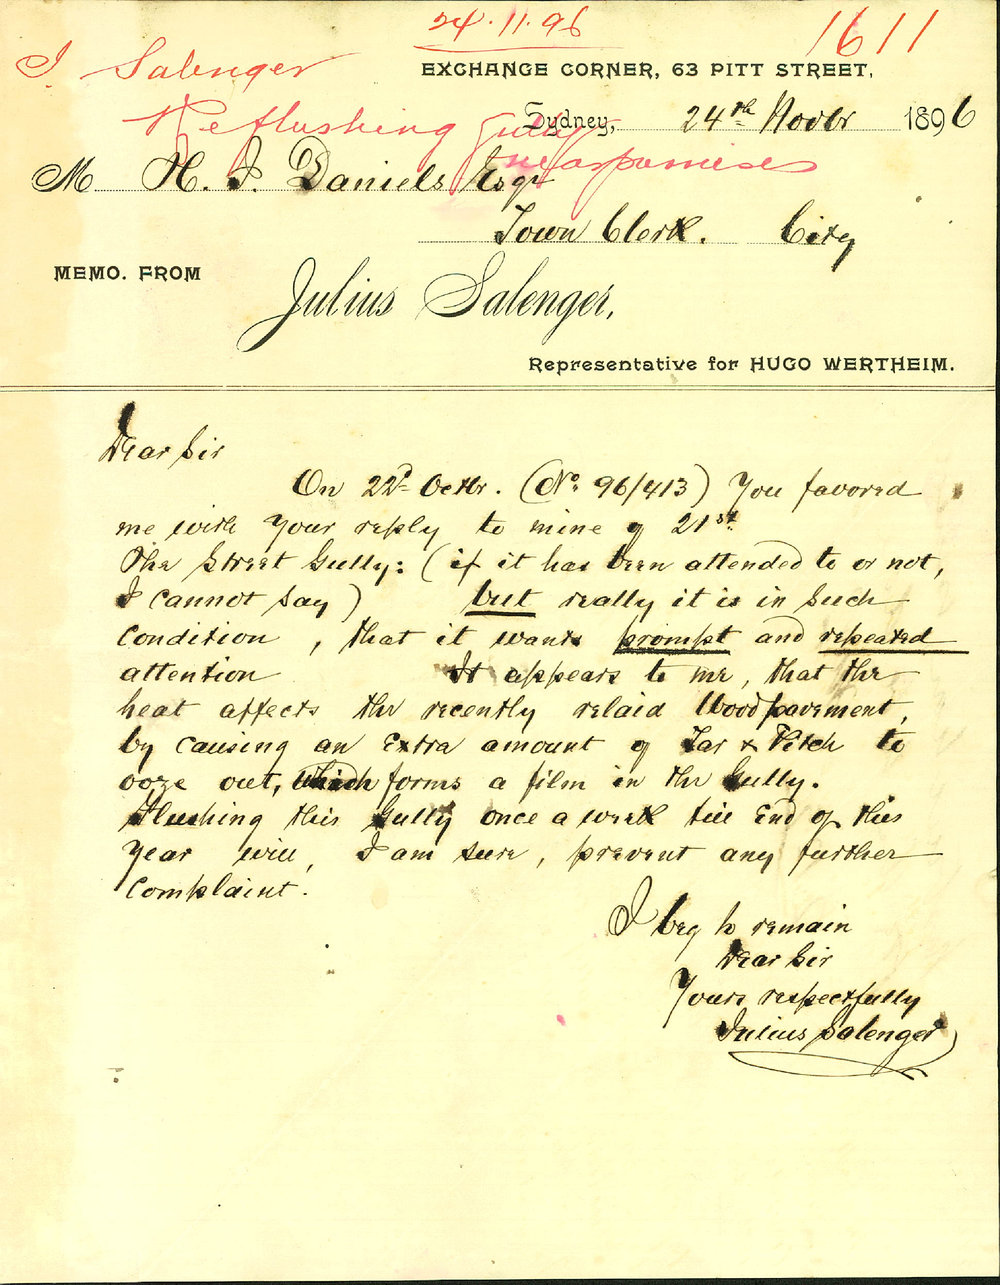 24.11.96
1611
J Salenger
EXCHANGE CORNER, 63 PITT STREET,
Re flushing gully
near premises
Sydney, 24th Novbr 1896
M H. J. Daniels Esqr
Town Clerk. City
MEMO. FROM
Julius Salenger,
Representative for HUGO WERTHEIM.
Dear Sir
On 22d Octbr. (No. 96/413) You favored
me with Your reply to mine of 21st
The Street Gully: (if it has been attended to or not,
I cannot say) but really it is in such
condition, that it wants prompt and repeated
attention It appears to me, that the
heat affects the recently relaid Woodpavement,
by causing an Extra amount of Tar & Pitch to
ooze out, which forms a film in the Gully.
Flushing this Gully once a week till End of this
Year will, I am sure, prevent any further
Complaint.
I beg to remain
Dear Sir
Yours respectfully
Julius Salenger